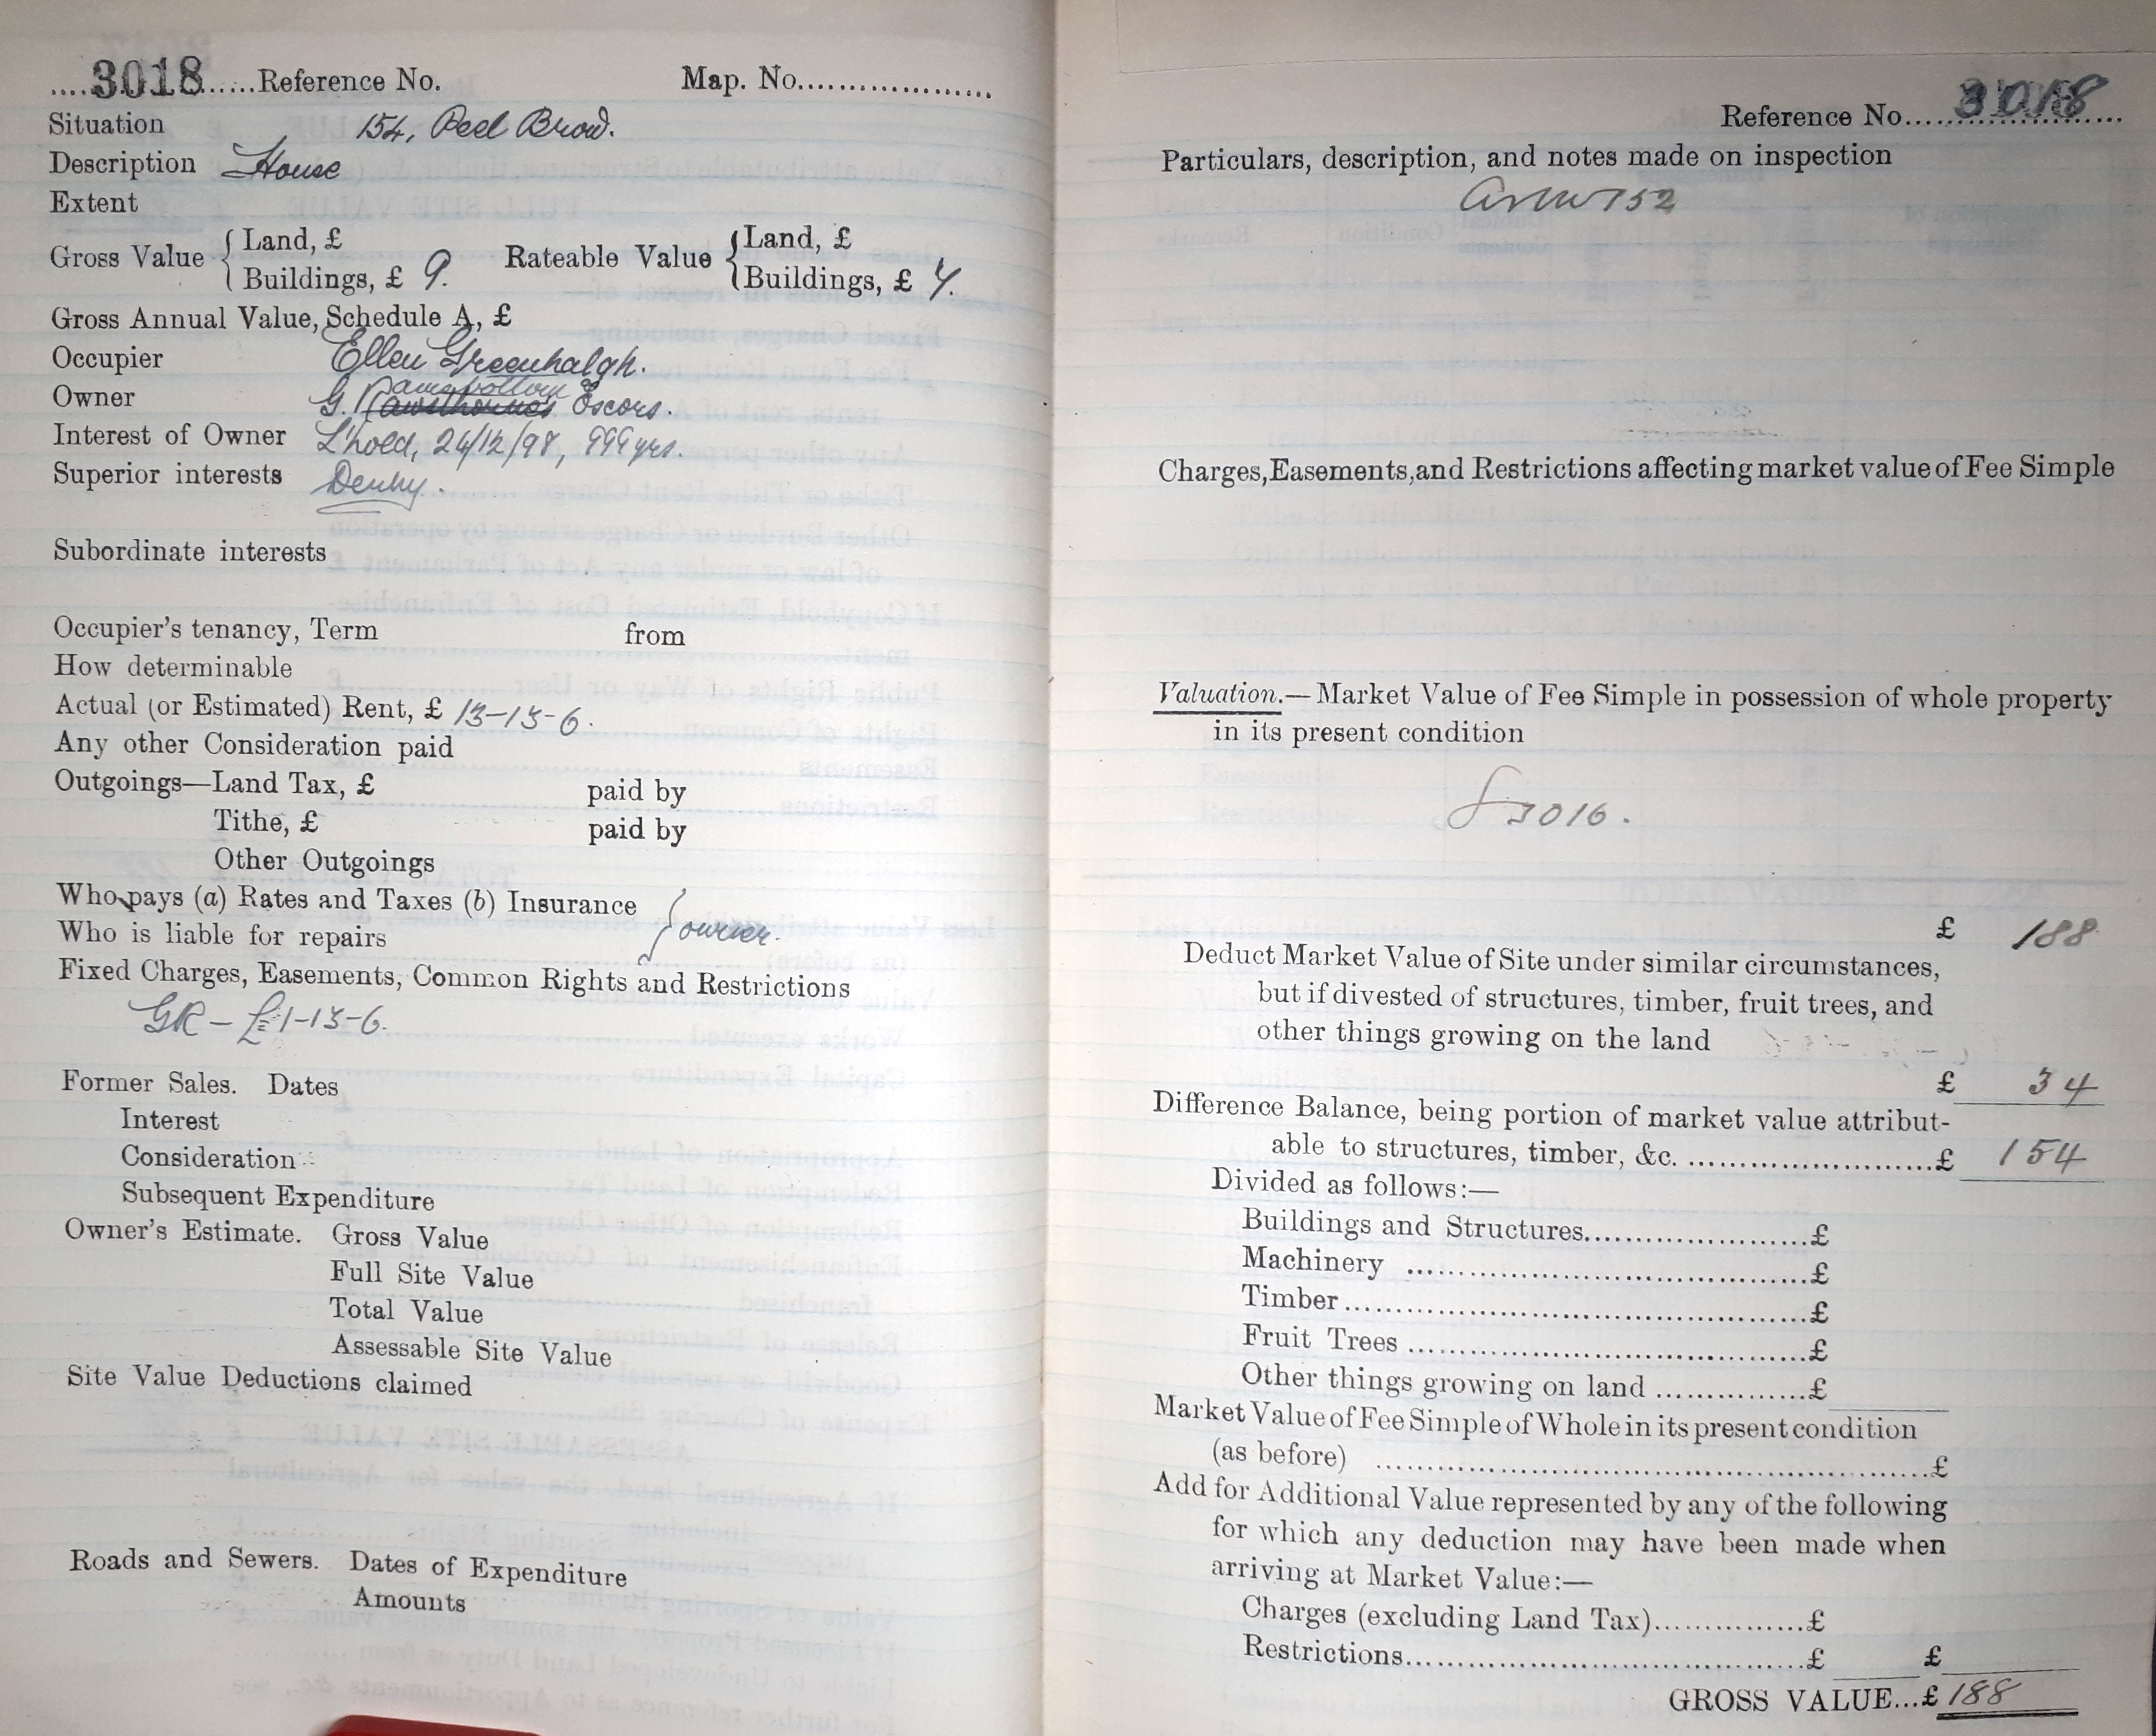 ....3018......Reference No. Map. No.....................
Situation 154, Peel Brow.
Description House
Extent
Gross Value { Land, £ Rateable Value { Land, £
Buildings, £ 9. Buildings, £ 7.
Gross Annual Value, Schedule A, £
Occupier Ellen Greenhalgh.
Owner G. Ramsbottom Exors.
Interest of Owner L'hold, 24/12/98, 999 yrs.
Superior interests Denby.
Subordinate interests
Occupier's tenancy, Term from
How determinable
Actual (or Estimated) Rent, £ 13-13-6.
Any other Consideration paid
Outgoings—Land Tax, £ paid by
Tithe, £ paid by
Other Outgoings
Who pays (a) Rates and Taxes (b) Insurance
Who is liable for repairs } owner.
Fixed Charges, Easements, Common Rights and Restrictions
GR – £1-13-6.
Former Sales. Dates
Interest
Consideration
Subsequent Expenditure
Owner's Estimate. Gross Value
Full Site Value
Total Value
Assessable Site Value
Site Value Deductions claimed
Roads and Sewers. Dates of Expenditure
Amounts
Reference No. 3018
Particulars, description, and notes made on inspection
152
Charges, Easements, and Restrictions affecting market value of Fee Simple
Valuation.—Market Value of Fee Simple in possession of whole property
in its present condition
3016.
£ 188
Deduct Market Value of Site under similar circumstances,
but if divested of structures, timber, fruit trees, and
other things growing on the land
£ 34
Difference Balance, being portion of market value attribut-
able to structures, timber, &c. ..........................£ 154
Divided as follows:—
Buildings and Structures.......................£
Machinery .........................................£
Timber................................................£
Fruit Trees ..........................................£
Other things growing on land ................£
Market Value of Fee Simple of Whole in its present condition
(as before) ..........................................................£
Add for Additional Value represented by any of the following
for which any deduction may have been made when
arriving at Market Value:—
Charges (excluding Land Tax)................£
Restrictions..........................................£ £
GROSS VALUE...£ 188